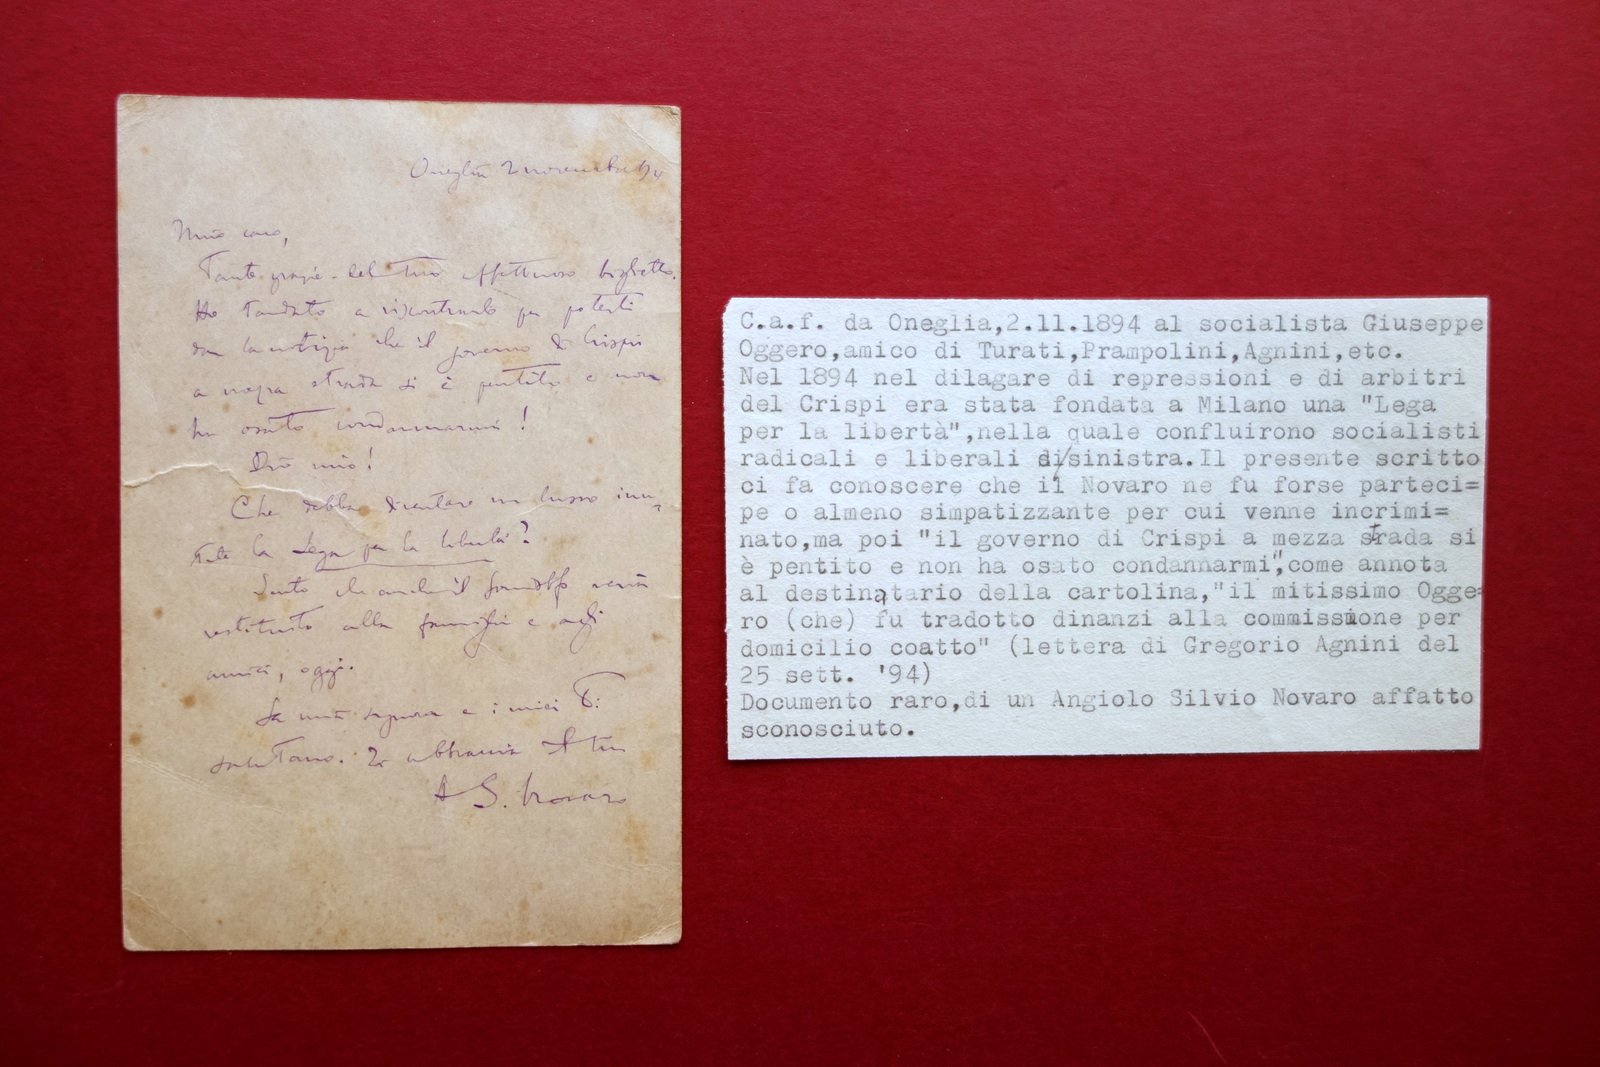 Oneglia 2 novembre 94
Mio caro,
Tante grazie del tuo affettuoso biglietto.
Ho tardato a riscontrarlo per poterti
dar la notizia che il governo di Crispi
a mezza strada si è pentito e non
ha osato condannarmi!
Dio mio!
Che debba diventare un lusso inu-
tile la Lega per la libertà?
Sento che anche il verrà
restituito alla famiglia e agli
amici, oggi.
La mia signora e i miei Ti
salutano. Ti abbraccia il tuo
A S. Novaro
C.a.f. da Oneglia,2.11.1894 al socialista Giuseppe
Oggero,amico di Turati,Prampolini,Agnini,etc.
Nel 1894 nel dilagare di repressioni e di arbitri
del Crispi era stata fondata a Milano una "Lega
per la libertà",nella quale confluirono socialisti
radicali e liberali di/sinistra.Il presente scritto
ci fa conoscere che il Novaro ne fu forse parteci=
pe o almeno simpatizzante per cui venne incrimi=
nato,ma poi "il governo di Crispi a mezza strada si
è pentito e non ha osato condannarmi",come annota
al destinatario della cartolina,"il mitissimo Ogge=
ro (che) fu tradotto dinanzi alla commissione per
domicilio coatto" (lettera di Gregorio Agnini del
25 sett. '94)
Documento raro,di un Angiolo Silvio Novaro affatto
sconosciuto.